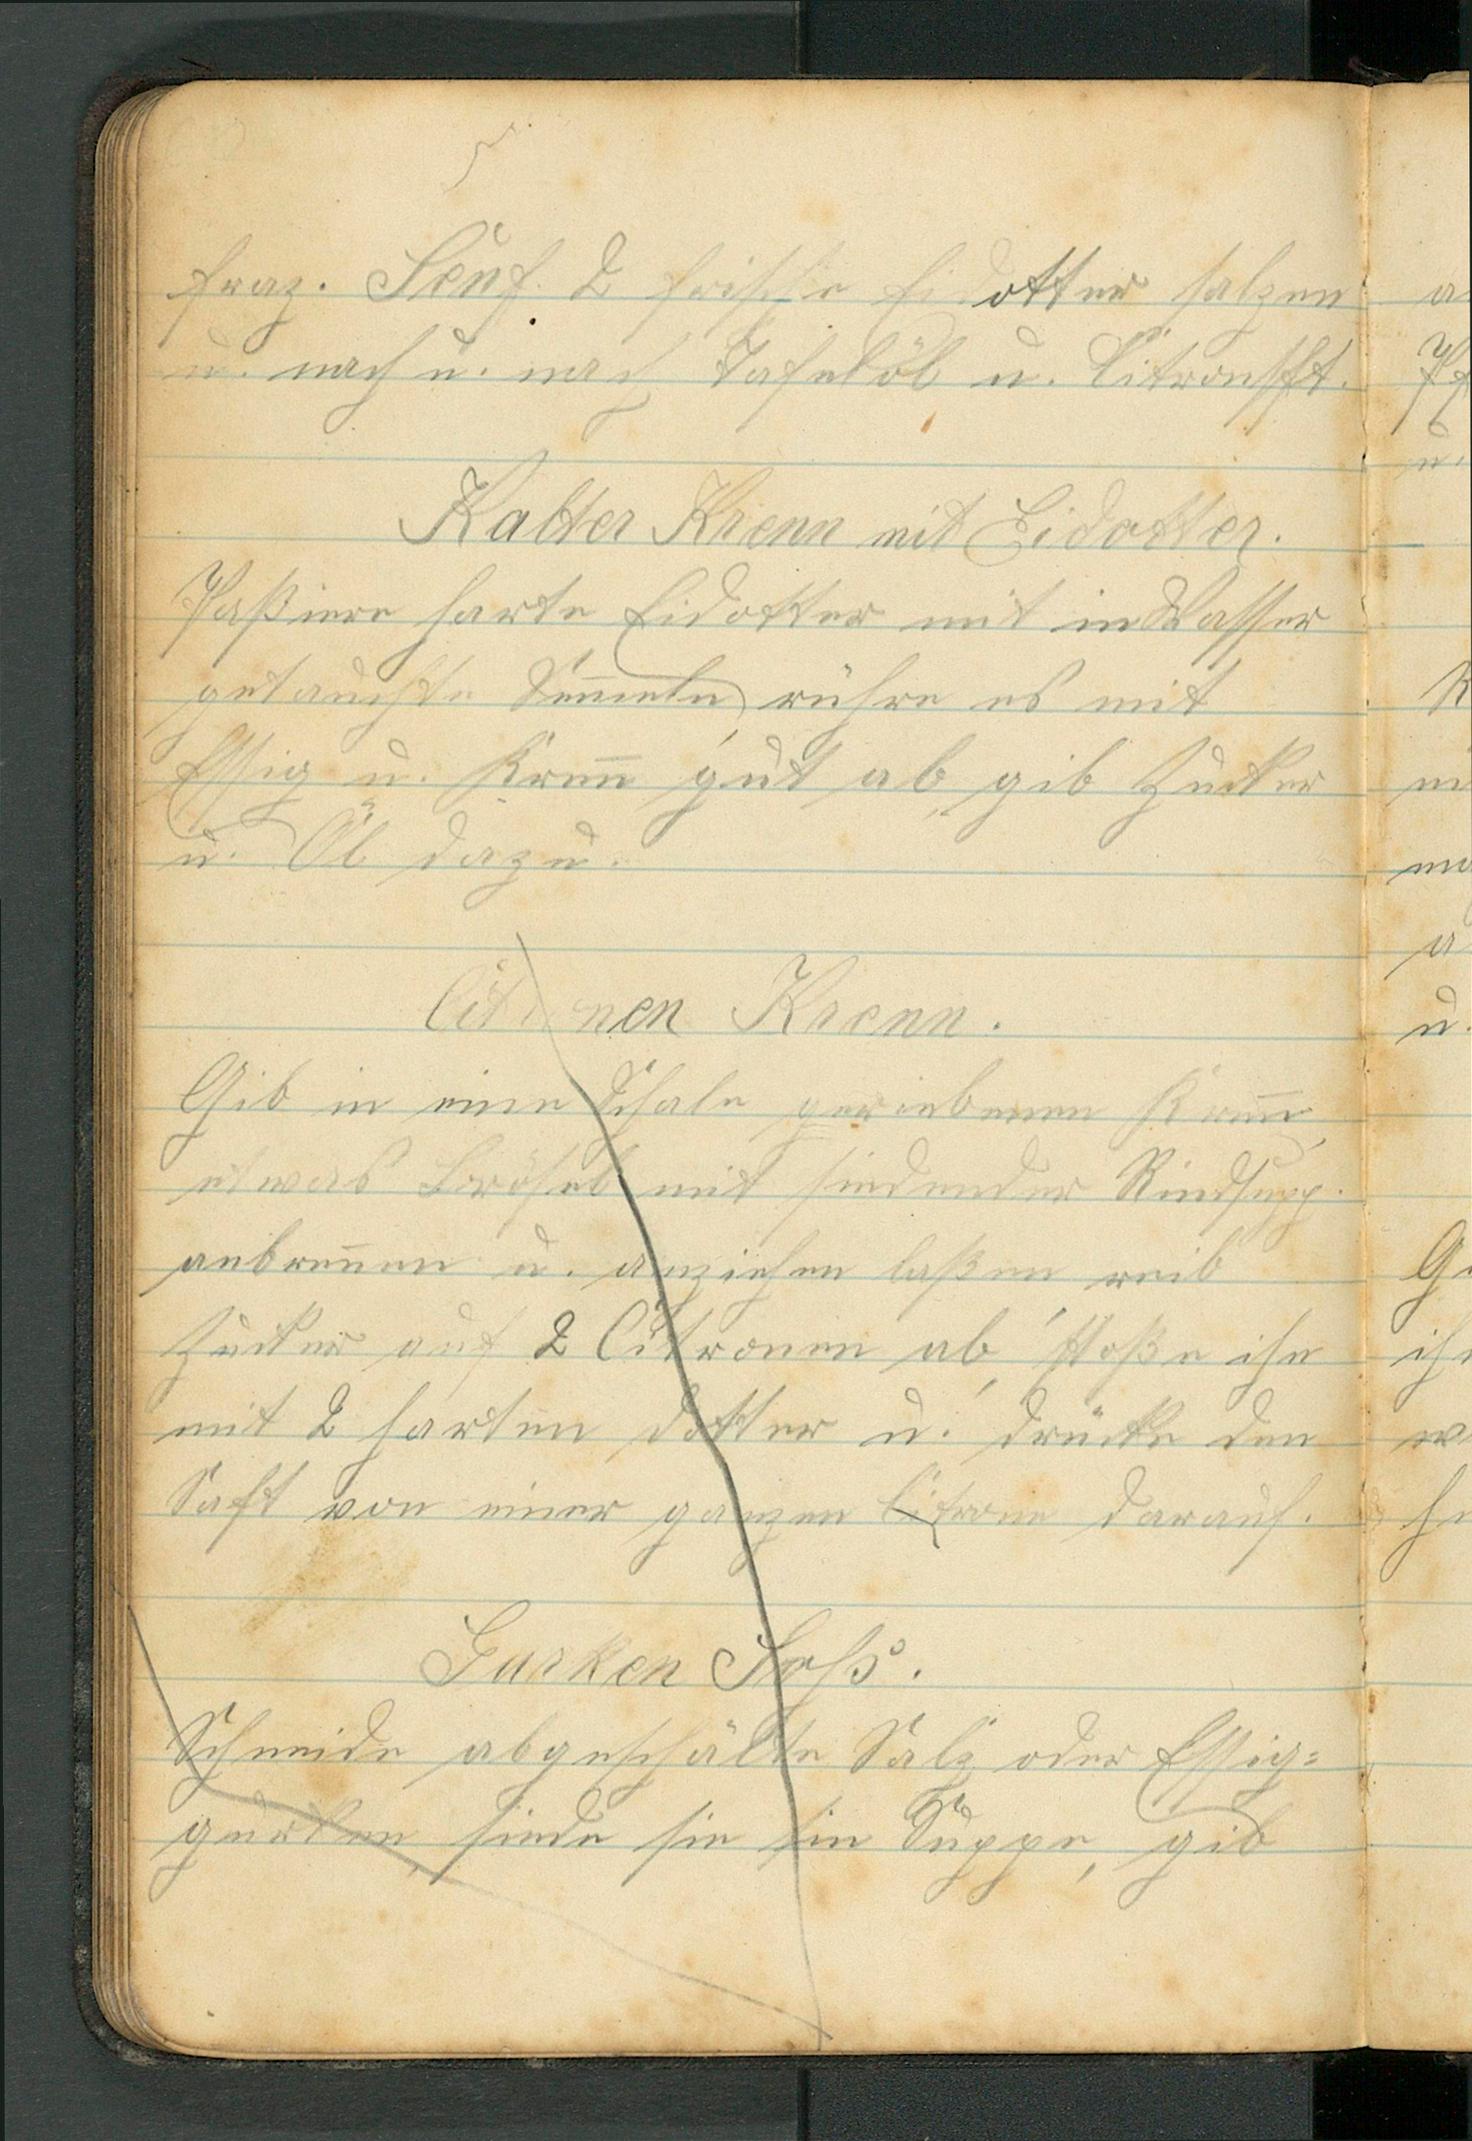 fraz. Senf. 2 frische Eidotter salzen
u. nach u. nach Tafelöl u. Citronsft.
Kalter Krenn mit Eidotter.
Paßiere harte Eidotter mit in Wasser
getauchte Semmeln, rühre es mit
Essig u. Krenn gut ab, gib Zucker
u. Öl dazu.
Citronen Krenn.
Gib in eine Schale geriebenen Krenn,
etwas Brösel mit siedender Rindsupp.
anbrennen u. anziehen laßen reib
Zucker auf 2 Citronen ab, stoße ihn
mit 2 harten Dotter u. drücke den
Saft von einer ganzen Citrone darauf.
Gurken Soß.
Schneide abgeschälte Salz oder Essig=
gurken, siede sie in Suppe, gib